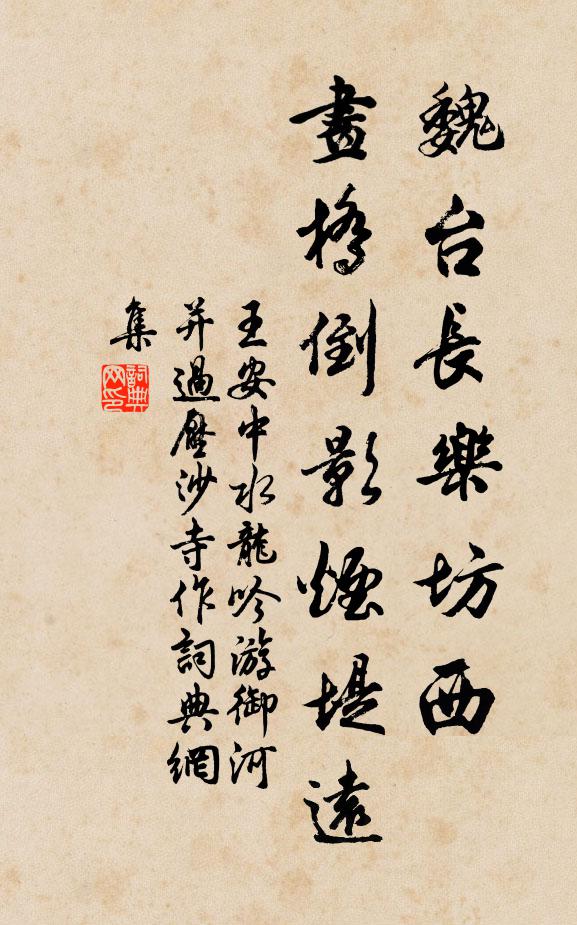 魏台長樂坊西
畫橋倒影煙堤遠
王安中水龍吟游御河
并過壓沙寺作詞典網
集
詞典網印